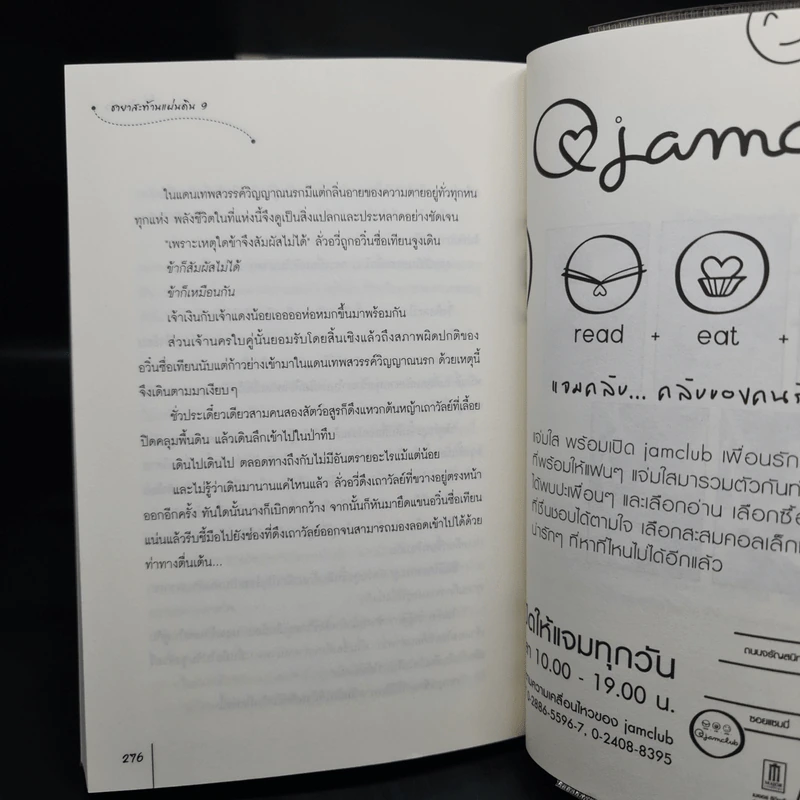 ชายาสะท้านแผ่นดิน 9
ในแดนเทพสวรรค์วิญญาณนรกมีแต่กลิ่นอายของความตายอยู่ทั่วทุกหน
ทุกแห่ง พลังชีวิตในที่แห่งนี้จึงดูเป็นสิ่งแปลกและประหลาดอย่างชัดเจน
"เพราะเหตุใดข้าจึงสัมผัสไม่ได้" ลั่วอวี่ถูกอวิ๋นซื่อเทียนจูงเดิน
ข้าก็สัมผัสไม่ได้
ข้าก็เหมือนกัน
เจ้าเงินกับเจ้าแดงน้อยเออออห่อหมกขึ้นมาพร้อมกัน
ส่วนเจ้านครใบคู่นั้นยอมรับโดยสิ้นเชิงแล้วถึงสภาพผิดปกติของ
อวิ๋นซื่อเทียนนับแต่ก้าวย่างเข้ามาในแดนเทพสวรรค์วิญญาณนรก ด้วยเหตุนี้
จึงเดินตามมาเงียบๆ
ชั่วประเดี๋ยวเดียวสามคนสองสัตว์อสูรก็ดึงแหวกต้นหญ้าเถาวัลย์ที่เลื้อย
ปิดคลุมพื้นดิน แล้วเดินลึกเข้าไปในป่าทึบ
เดินไปเดินไป ตลอดทางถึงกับไม่มีอันตรายอะไรแม้แต่น้อย
และไม่รู้ว่าเดินมานานแค่ไหนแล้ว ลั่วอวี่ดึงเถาวัลย์ที่ขวางอยู่ตรงหน้า
ออกอีกครั้ง ทันใดนั้นนางก็เบิกตากว้าง จากนั้นก็หันมายึดแขนอวิ๋นซื่อเทียน
แน่นแล้วรีบชี้มือไปยังช่องที่ดึงเถาวัลย์ออกจนสามารถมองลอดเข้าไปได้ด้วย
ท่าทางตื่นเต้น...
276
jamc
read + eat +
แจมคลับ... คลับของคนรั
แจ่มใส พร้อมเปิด jamclub เพื่อนรัก
ที่พร้อมให้แฟนๆ แจ่มใสมารวมตัวกันท
ได้พบปะเพื่อนๆ และเลือกอ่าน เลือกซื้อ
ที่ชื่นชอบได้ตามใจ เลือกสะสมคอลเล็ก
น่ารักๆ ที่หาที่ไหนไม่ได้อีกแล้ว
ให้แจมทุกวัน
10.00 - 19.00 น.
ความเคลื่อนไหวของ jamclub
-2886-5596-7, 0-2408-8395
ถนนจรัญสนิท
ซอยแซมมี่
jamclub
MAJOR